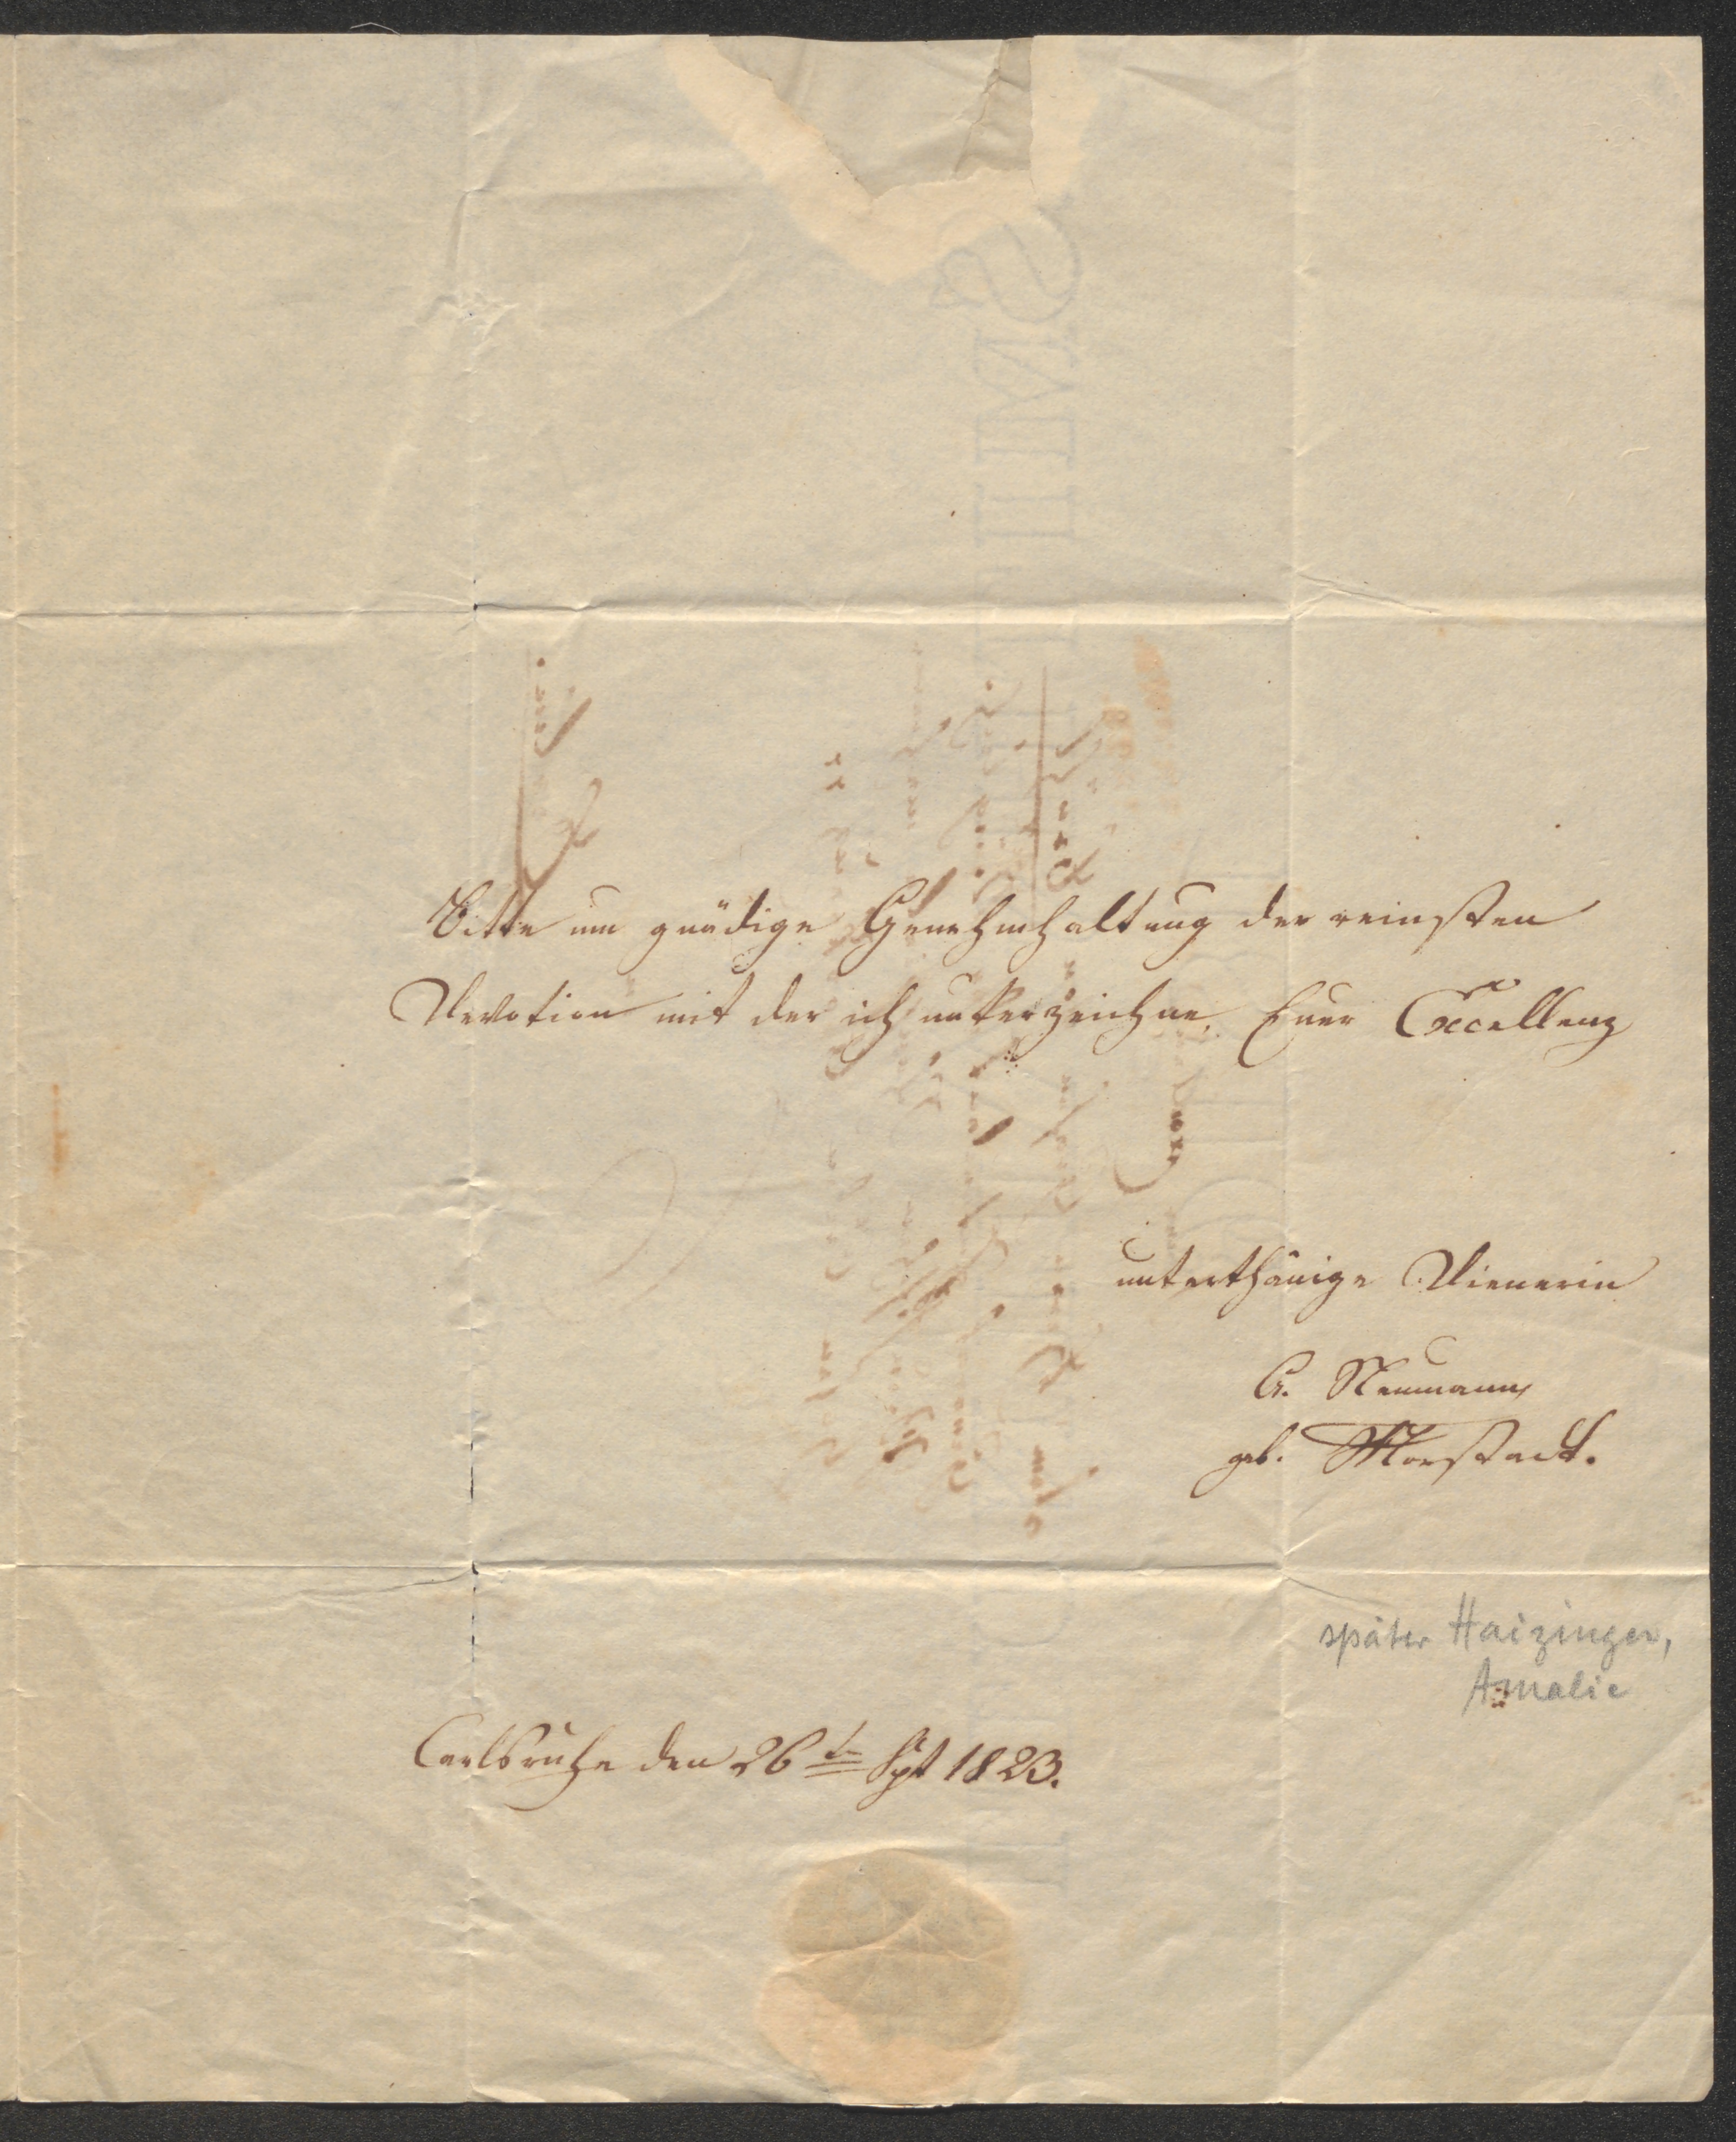 Bitte um gnädige Genehmhaltung der reinsten
Devotion mit der ich unterzeichne. Euer Excellenz
unterthänige Dienerin
A. Neumann
geb. Morstadt.
später Haizinger,
Amalie
Carlsruhe den 26t Spt 1823.